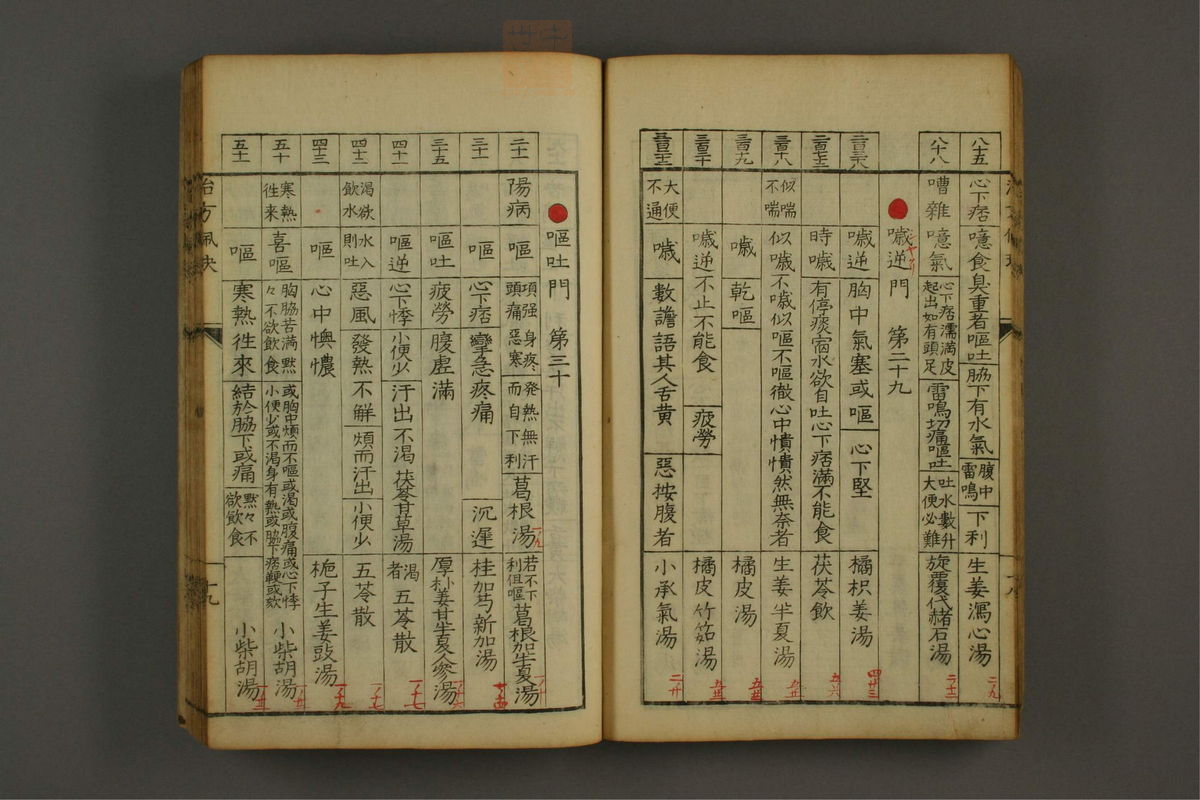 八十五 心下痞 噫食臭重者嘔吐 脇下有水氣 腹中雷鳴 下利 生姜瀉心湯
八十八 嘈雜 噫氣 心下痞濡滿皮起出如有頭足 雷鳴切痛嘔吐 吐水數升大便必難 旋覆代赭石湯
噦逆門 第二十九
噦逆 胸中氣塞或嘔 心下堅 橘枳姜湯
時噦 有停痰宿水欲自吐心下痞滿不能食 茯苓飲
似喘不喘 似噦不噦似嘔不嘔徹心中憒憒然無奈者 生姜半夏湯
噦 乾嘔 橘皮湯
噦逆不止不能食 疲勞 橘皮竹茹湯
大便不通 噦 數譫語其人舌黄 惡按腹者 小承氣湯
嘔吐門 第三十
陽病 嘔 項强頭痛 身疼惡寒 発熱無汗而自下利 葛根湯 若不下利但嘔 葛根加半夏湯
嘔 心下痞 攣急疼痛 沉遲 桂加芍新加湯
三十五 嘔吐 疲勞 腹虚滿 厚朴姜甘半夏人參湯
四十一 嘔逆 心下悸 小便少 汗出不渴 茯苓甘草湯 渴者 五苓散
四十二 渴欲飲水 水入則吐 惡風 發熱不鮮 煩而汗出 小便少 五苓散
四十三 嘔 心中懊憹 梔子生姜豉湯
五十 寒熱徃來 喜嘔 胸脇苦滿 黙々不欲飲食 或胸中煩而不嘔或渴或腹痛或心下悸小便少或不渴身有熱或脇下痞鞕或欬 小柴胡湯
五十一 嘔 寒熱徃來 結於脇下或痛 黙々不欲飲食 小柴胡湯
治方佩訣
十九